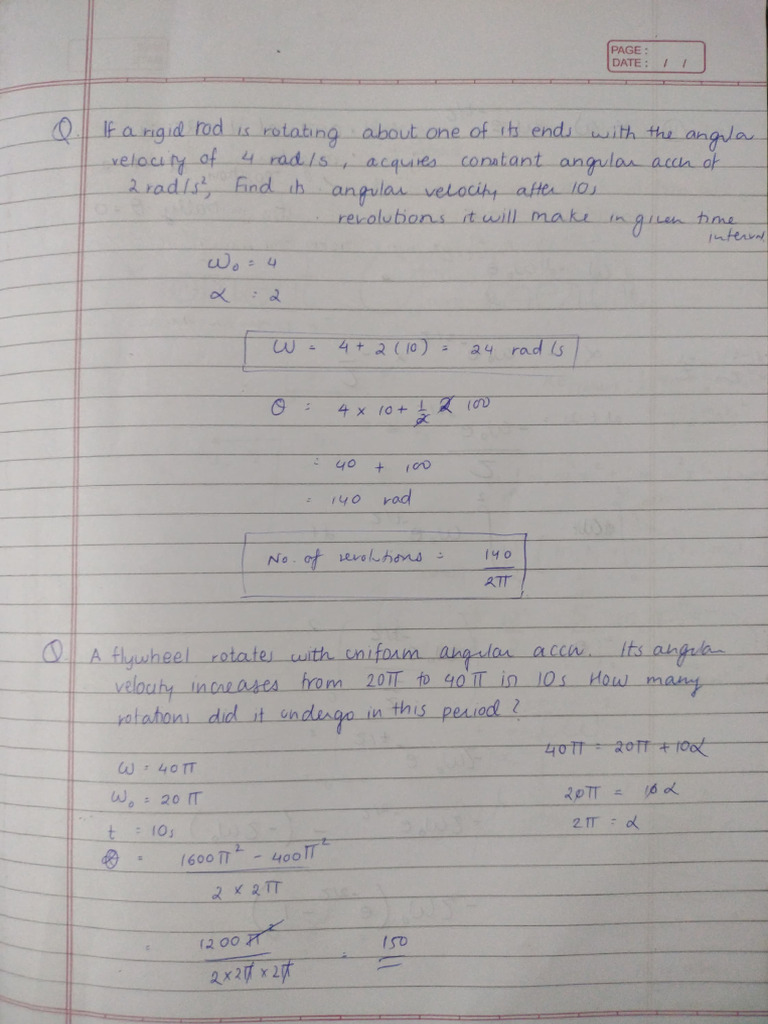 PAGE :
DATE : / /
Q. If a rigid rod is rotating about one of its ends with the angula
velocity of 4 rad/s, acquires constant angular accn of
2 rad/s², Find its angular velocity after 10s
revolutions it will make in given time
interval
ω₀ = 4
α = 2
ω = 4 + 2(10) = 24 rad/s
θ = 4 × 10 + 1/2 2 100
= 40 + 100
= 140 rad
No. of revolutions = 140/2π
Q. A flywheel rotates with uniform angular accn. Its angular
velocity increases from 20π to 40π in 10s How many
rotations did it undergo in this period?
40π = 20π + 10α
ω = 40π
20π = 10α
ω₀ = 20π
2π = α
t = 10s
= 1600π² - 400π² / 2 × 2π
= 1200π² / 2×2π×2π = 150